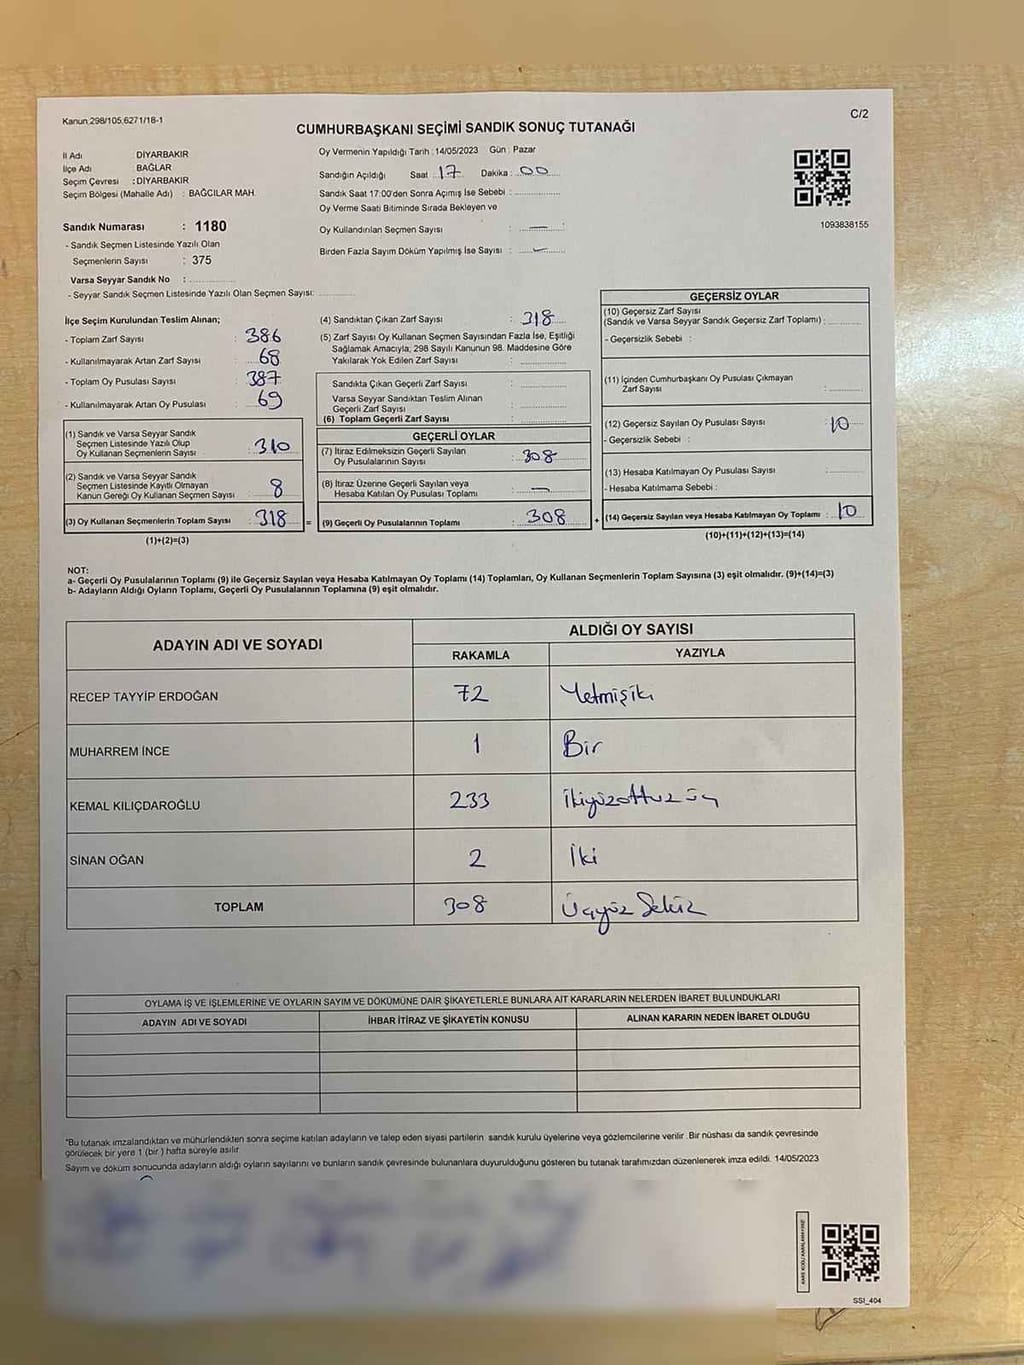 Kanun 298/105,6271/18-1
C/2
CUMHURBAŞKANI SEÇİMİ SANDIK SONUÇ TUTANAĞI
İl Adı DİYARBAKIR
İlçe Adı BAĞLAR
Seçim Çevresi : DİYARBAKIR
Seçim Bölgesi (Mahalle Adı) : BAĞCILAR MAH.
Oy Vermenin Yapıldığı Tarih : 14/05/2023 Gün : Pazar
Sandığın Açıldığı Saat : 17 Dakika : 00
Sandık Saat 17:00'den Sonra Açımış İse Sebebi :
Oy Verme Saati Bitiminde Sırada Bekleyen ve
Oy Kullandırılan Seçmen Sayısı : —
Birden Fazla Sayım Döküm Yapılmış İse Sayısı : —
1093838155
Sandık Numarası : 1180
- Sandık Seçmen Listesinde Yazılı Olan
Seçmenlerin Sayısı : 375
Varsa Seyyar Sandık No :
- Seyyar Sandık Seçmen Listesinde Yazılı Olan Seçmen Sayısı:
İlçe Seçim Kurulundan Teslim Alınan;
- Toplam Zarf Sayısı : 386
- Kullanılmayarak Artan Zarf Sayısı : 68
- Toplam Oy Pusulası Sayısı : 387
- Kullanılmayarak Artan Oy Pusulası : 69
(1) Sandık ve Varsa Seyyar Sandık
Seçmen Listesinde Yazılı Olup
Oy Kullanan Seçmenlerin Sayısı : 310
(2) Sandık ve Varsa Seyyar Sandık
Seçmen Listesinde Kayıtlı Olmayan
Kanun Gereği Oy Kullanan Seçmen Sayısı : 8
(3) Oy Kullanan Seçmenlerin Toplam Sayısı : 318 =
(1)+(2)=(3)
(4) Sandıktan Çıkan Zarf Sayısı : 318
(5) Zarf Sayısı Oy Kullanan Seçmen Sayısından Fazla İse, Eşitliği
Sağlamak Amacıyla, 298 Sayılı Kanunun 98. Maddesine Göre
Yakılarak Yok Edilen Zarf Sayısı :
Sandıkta Çıkan Geçerli Zarf Sayısı :
Varsa Seyyar Sandıktan Teslim Alınan
Geçerli Zarf Sayısı :
(6) Toplam Geçerli Zarf Sayısı :
GEÇERLİ OYLAR
(7) İtiraz Edilmeksizin Geçerli Sayılan
Oy Pusulalarının Sayısı : 308
(8) İtiraz Üzerine Geçerli Sayılan veya
Hesaba Katılan Oy Pusulası Toplamı : —
(9) Geçerli Oy Pusulalarının Toplamı : 308 +
GEÇERSİZ OYLAR
(10) Geçersiz Zarf Sayısı
(Sandık ve Varsa Seyyar Sandık Geçersiz Zarf Toplamı) :
- Geçersizlik Sebebi :
(11) İçinden Cumhurbaşkanı Oy Pusulası Çıkmayan
Zarf Sayısı :
(12) Geçersiz Sayılan Oy Pusulası Sayısı : 10
- Geçersizlik Sebebi :
(13) Hesaba Katılmayan Oy Pusulası Sayısı :
- Hesaba Katılmama Sebebi :
(14) Geçersiz Sayılan veya Hesaba Katılmayan Oy Toplamı : 10
(10)+(11)+(12)+(13)=(14)
NOT:
a- Geçerli Oy Pusulalarının Toplamı (9) ile Geçersiz Sayılan veya Hesaba Katılmayan Oy Toplamı (14) Toplamları, Oy Kullanan Seçmenlerin Toplam Sayısına (3) eşit olmalıdır. (9)+(14)=(3)
b- Adayların Aldığı Oyların Toplamı, Geçerli Oy Pusulalarının Toplamına (9) eşit olmalıdır.
ADAYIN ADI VE SOYADI ALDIĞI OY SAYISI
RAKAMLA YAZIYLA
RECEP TAYYİP ERDOĞAN 72 Yetmişiki
MUHARREM İNCE 1 Bir
KEMAL KILIÇDAROĞLU 233 İkiyüzottuz üç
SİNAN OĞAN 2 İki
TOPLAM 308 Üçyüz Sekiz
OYLAMA İŞ VE İŞLEMLERİNE VE OYLARIN SAYIM VE DÖKÜMÜNE DAİR ŞİKAYETLERLE BUNLARA AİT KARARLARIN NELERDEN İBARET BULUNDUKLARI
ADAYIN ADI VE SOYADI İHBAR İTİRAZ VE ŞİKAYETİN KONUSU ALINAN KARARIN NEDEN İBARET OLDUĞU
"Bu tutanak imzalandıktan ve mühürlendikten sonra seçime katılan adayların ve talep eden siyasi partilerin sandık kurulu üyelerine veya gözlemcilerine verilir. Bir nüshası da sandık çevresinde
görülecek bir yere 1 (bir) hafta süreyle asılır
Sayım ve döküm sonucunda adayların aldığı oyların sayılarını ve bunların sandık çevresinde bulunanlara duyurulduğunu gösteren bu tutanak tarafımızdan düzenlenerek imza edildi. 14/05/2023
SSI_404